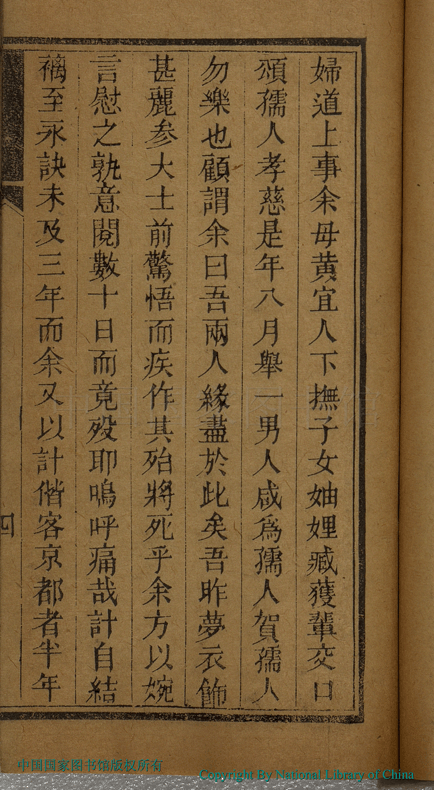 婦道上事余母黃宜人下撫子女妯娌臧獲輩交口
頌孺人孝慈是年八月舉一男人咸爲孺人賀孺人
勿樂也顧謂余曰吾兩人緣盡於此矣吾昨夢衣飾
甚麗參大士前驚悟而疾作其殆將死乎余方以婉
言慰之孰意閱數十日而竟歿耶嗚呼痛哉計自結
褵至永訣未及三年而余又以計偕客京都者半年
四
中国国家图书馆版权所有
Copyright By National Library of China